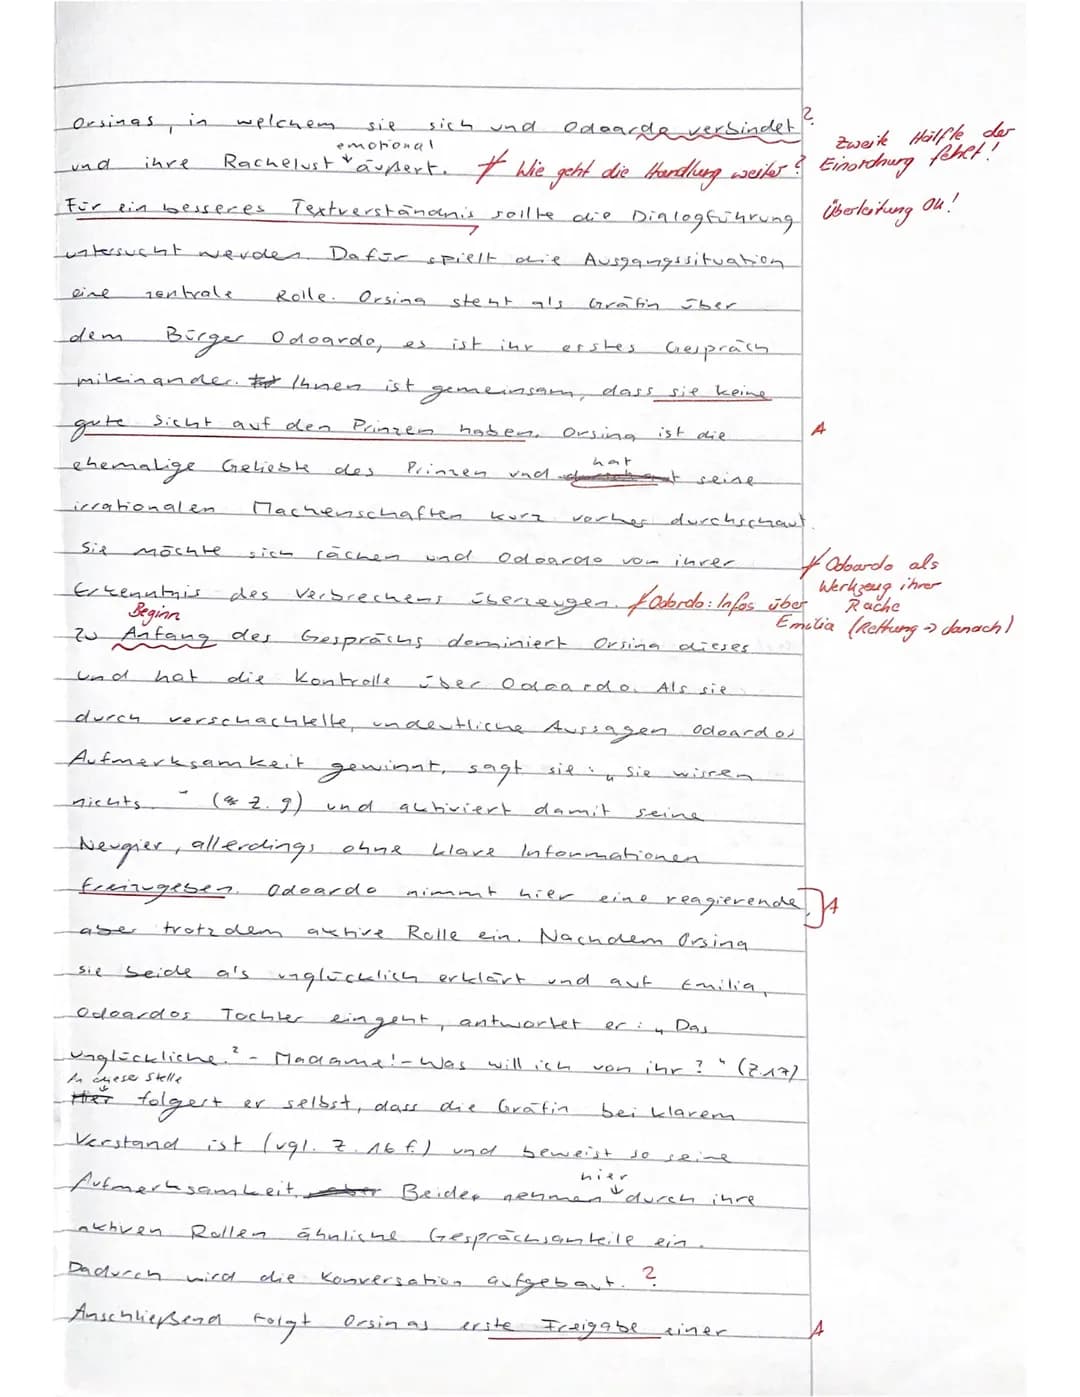 Orsinas, in welchem sie sich und Odoardo verbindet ?
Zweite Hälfte der
emotional
und ihre Rachelust äußert. Wie geht die Handlung weiter? Einordnung fehlt!
Für ein besseres Textverständnis sollte die Dialogführung Überleitung Ok!
untersucht werden. Dafür spielt die Ausgangssituation
eine zentrale Rolle. Orsina steht als Gräfin über
dem Bürger Odoardo, es ist ihr erstes Gespräch
miteinander. Ihnen ist gemeinsam, dass sie keine
gute Sicht auf den Prinzen haben. Orsina ist die A
hat
ehemalige Geliebte des Prinzen und seine
irrationalen Machenschaften kurz vorher durchschaut.
Sie möchte sich rächen und Odoardo von ihrer Odoardo als
Werkzeug ihrer
Erkenntnis des Verbrechens überzeugen. Odoardo: Infos über Rache
Beginn Emilia (Rettung → danach)
Zu Anfang des Gesprächs dominiert Orsina dieses
und hat die Kontrolle über Odoardo. Als sie
durch verschachtelte, undeutliche Aussagen Odoardos
Aufmerksamkeit gewinnt, sagt sie: „Sie wissen
nichts." (Z. 9) und aktiviert damit seine
Neugier, allerdings ohne klare Informationen
freizugeben. Odoardo nimmt hier eine reagierende, A
aber trotzdem aktive Rolle ein. Nachdem Orsina
sie beide als unglücklich erklärt und auf Emilia,
Odoardos Tochter eingeht, antwortet er: „Das
unglückliche? - Madame! - Was will ich von ihr?" (Z. 17)
An dieser Stelle
Hier folgert er selbst, dass die Gräfin bei klarem
Verstand ist (vgl. Z. 16 f.) und beweist so seine
hier
Aufmerksamkeit, aber Beide nehmen durch ihre
aktiven Rollen ähnliche Gesprächsanteile ein.
Dadurch wird die Konversation aufgebaut. ?
Anschließend folgt Orsinas erste Freigabe einer A